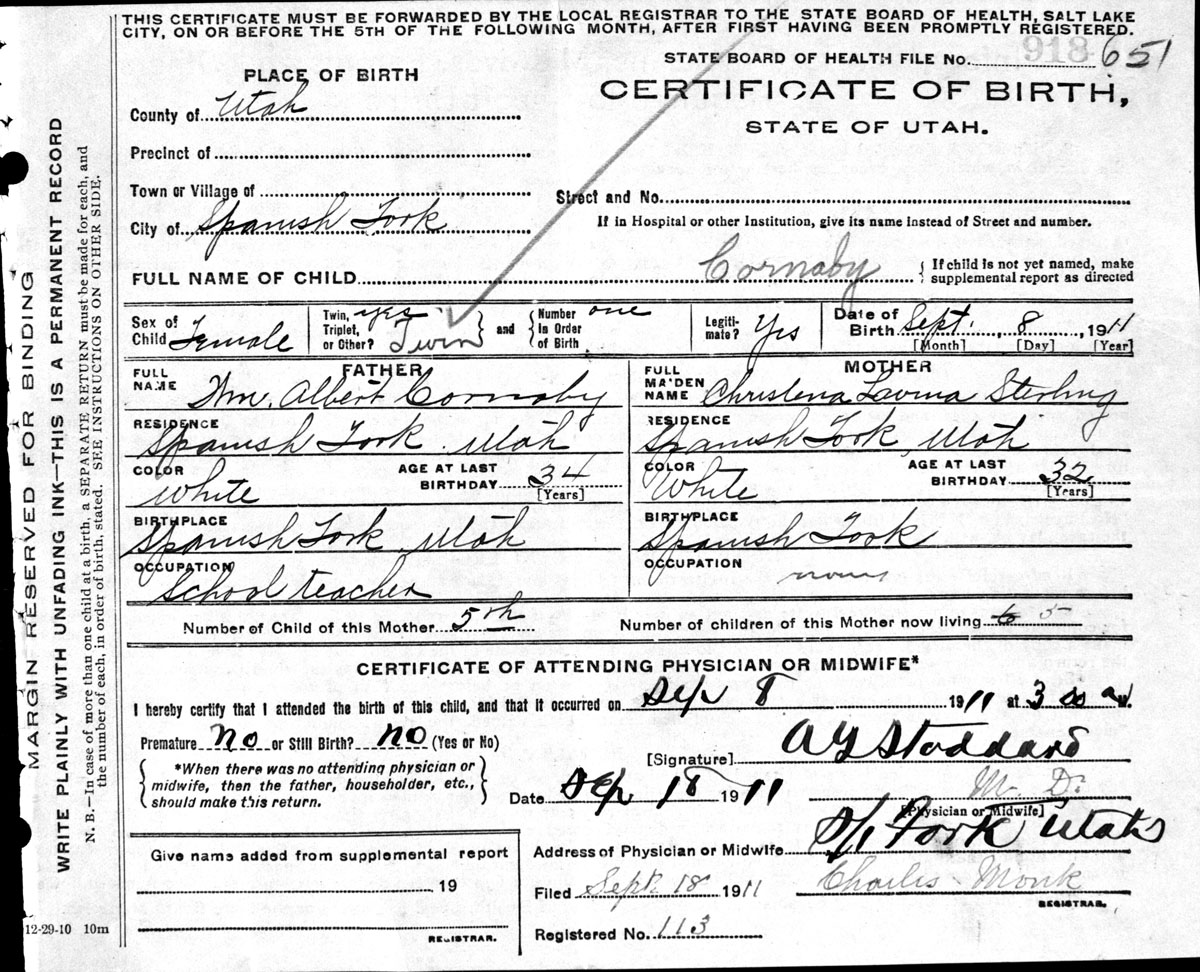 THIS CERTIFICATE MUST BE FORWARDED BY THE LOCAL REGISTRAR TO THE STATE BOARD OF HEALTH, SALT LAKE
CITY, ON OR BEFORE THE 5TH OF THE FOLLOWING MONTH, AFTER FIRST HAVING BEEN PROMPTLY REGISTERED.
STATE BOARD OF HEALTH FILE No. 918 651
PLACE OF BIRTH
CERTIFICATE OF BIRTH,
STATE OF UTAH.
County of Utah
Precinct of
Town or Village of
Street and No.
City of Spanish Fork
If in Hospital or other Institution, give its name instead of Street and number.
FULL NAME OF CHILD Cornaby { If child is not yet named, make
supplemental report as directed
Sex of Child Female
Twin, Triplet, or Other? yes. Twin
and
Number in Order of Birth one
Legiti-mate? Yes
Date of Birth Sept. 8, 1911
[Month] [Day] [Year]
FATHER
FULL NAME Wm. Albert Cornaby
RESIDENCE Spanish Fork Utah
COLOR White
AGE AT LAST BIRTHDAY 34 [Years]
BIRTHPLACE Spanish Fork Utah
OCCUPATION School teacher
MOTHER
FULL MAIDEN NAME Christena Lavina Sterling
RESIDENCE Spanish Fork, Utah
COLOR White
AGE AT LAST BIRTHDAY 32 [Years]
BIRTHPLACE Spanish Fork
OCCUPATION
Number of Child of this Mother 5th
Number of children of this Mother now living 6 5
CERTIFICATE OF ATTENDING PHYSICIAN OR MIDWIFE*
I hereby certify that I attended the birth of this child, and that it occurred on Sep 8 1911 at 3 00 a M.
Premature no or Still Birth? no (Yes or No)
*When there was no attending physician or
midwife, then the father, householder, etc.,
should make this return.
[Signature] A Y Stoddard
Date Sep 18 1911
M. D.
[Physician or Midwife]
Address of Physician or Midwife Sp Fork Utah
Give name added from supplemental report
19
REGISTRAR.
Filed Sept. 18 1911
Charles Monk
REGISTRAR.
Registered No. 113
MARGIN RESERVED FOR BINDING
WRITE PLAINLY WITH UNFADING INK—THIS IS A PERMANENT RECORD
N. B.—In case of more than one child at a birth, a SEPARATE RETURN must be made for each, and
the number of each, in order of birth, stated. SEE INSTRUCTIONS ON OTHER SIDE.
12-29-10 10m